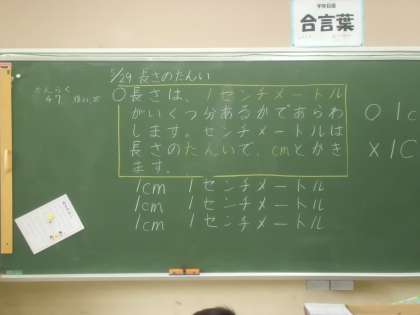 合言葉
5/29 長さのたんい
○長さは、1センチメートル
がいくつ分あるかであらわ
します。センチメートルは
長さのたんいで、cmとかき
ます。
1cm 1センチメートル
1cm 1センチメートル
1cm 1センチメートル
○ 1c
× 1C